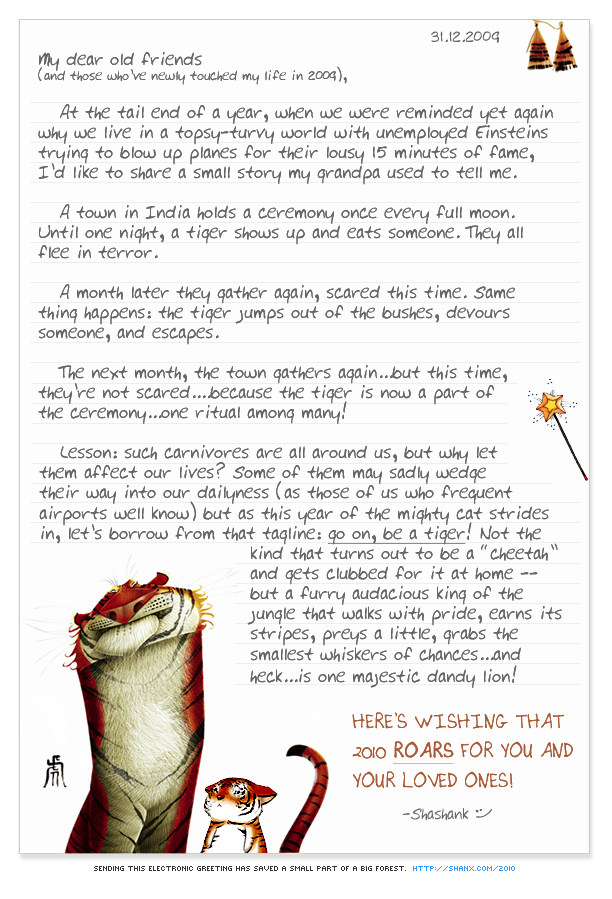 31.12.2009
My dear old friends
(and those who've newly touched my life in 2009),
At the tail end of a year, when we were reminded yet again
why we live in a topsy-turvy world with unemployed Einsteins
trying to blow up planes for their lousy 15 minutes of fame,
I'd like to share a small story my grandpa used to tell me.
A town in India holds a ceremony once every full moon.
Until one night, a tiger shows up and eats someone. They all
flee in terror.
A month later they gather again, scared this time. Same
thing happens: the tiger jumps out of the bushes, devours
someone, and escapes.
The next month, the town gathers again...but this time,
they're not scared....because the tiger is now a part of
the ceremony...one ritual among many!
Lesson: such carnivores are all around us, but why let
them affect our lives? Some of them may sadly wedge
their way into our dailyness (as those of us who frequent
airports well know) but as this year of the mighty cat strides
in, let's borrow from that tagline: go on, be a tiger! Not the
kind that turns out to be a "cheetah"
and gets clubbed for it at home --
but a furry audacious king of the
jungle that walks with pride, earns its
stripes, preys a little, grabs the
smallest whiskers of chances...and
heck...is one majestic dandy lion!
HERE'S WISHING THAT
2010 ROARS FOR YOU AND
YOUR LOVED ONES!
-Shashank
SENDING THIS ELECTRONIC GREETING HAS SAVED A SMALL PART OF A BIG FOREST. HTTP://SHANX.COM/2010